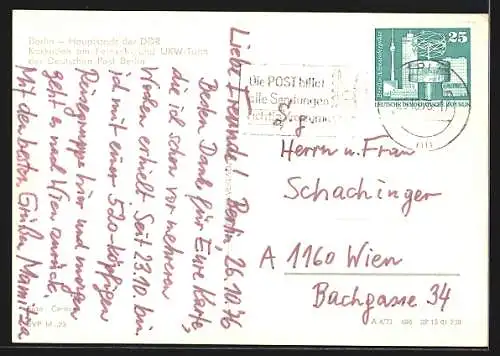 Berlin – Hauptstadt der DDR
Kaskaden am Fernseh- und UKW-Turm
der Deutschen Post Berlin
Liebe Freunde! Berlin, 26.10.76
Besten Dank für Eure Karte,
die ich schon vor mehreren
Wochen erhielt. Seit 23.10. bin
ich mit einer 520-köpfigen
Reisegruppe hier und morgen
geht es nach Wien zurück.
Mit den besten Grüßen
Die POST bittet
alle Sendungen
25
DEUTSCHE DEMOKRATISCHE REPUBLIK
Herrn u. Frau
Schachinger
A 1160 Wien
Bachgasse 34